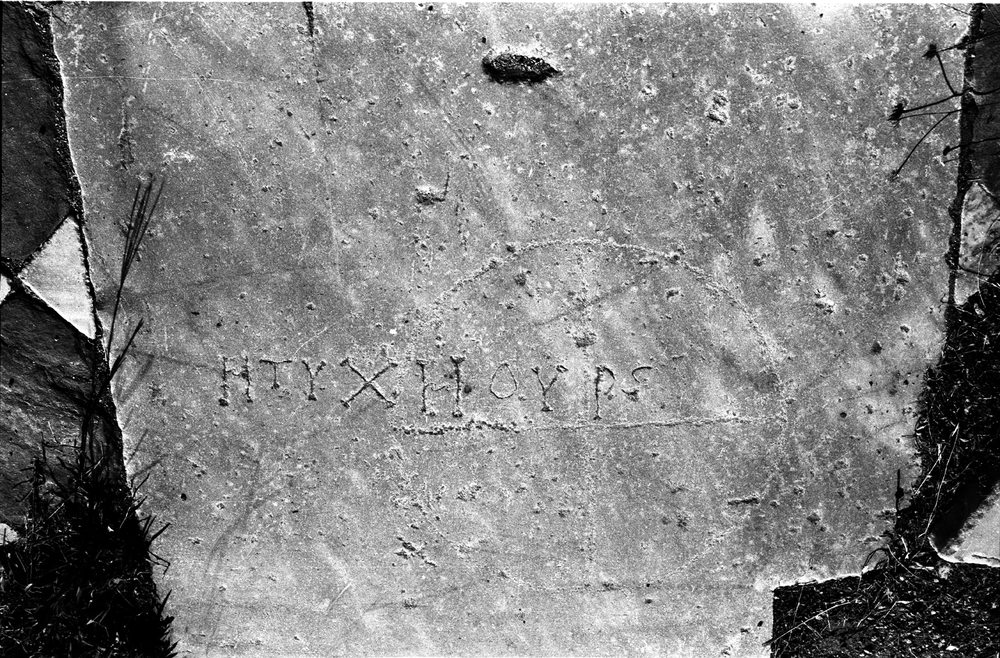 ΗΤΥΧΗΟΥΡϹ